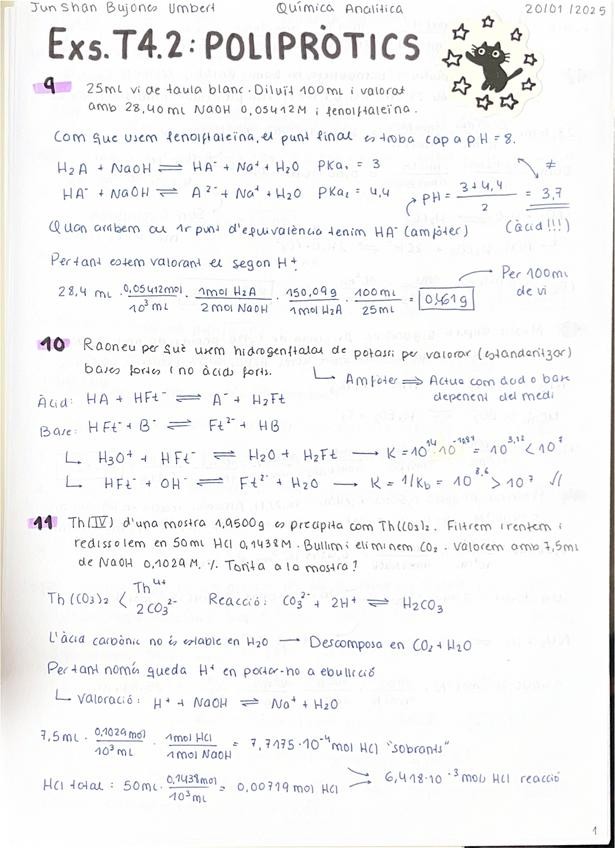 Jun Shan Bujones Umbert Química Analítica 20/01/2025
Exs. T4.2: POLIPRÒTICS
9 25mL vi de taula blanc. Diluït 100mL i valorat
amb 28,40mL NaOH 0,05412M i fenolftaleïna.
Com que usem fenolftaleïna, el punt final es troba cap a pH = 8.
H₂A + NaOH ⇌ HA⁻ + Na⁺ + H₂O PKa₁ = 3
HA⁻ + NaOH ⇌ A²⁻ + Na⁺ + H₂O PKa₂ = 4,4 → PH = (3+4,4)/2 = 3,7 ≠
Quan arribem au 1r punt d'equivalència tenim HA⁻ (amfòter) (àcid!!!)
Per tant estem valorant el segon H⁺.
28,4 mL · 0,05412mol/10³mL · 1mol H₂A/2mol NaOH · 150,09g/1mol H₂A · 100mL/25mL = 0,461g → Per 100mL de vi
10 Raoneu per què usem hidrogenftalat de potassi per valorar (estandaritzar)
bases fortes i no àcids forts. ↳ Amfòter ⇒ Actua com àcid o base
depenent del medi
Àcid: HA + HFt⁻ ⇌ A⁻ + H₂Ft
Base: HFt⁻ + B⁻ ⇌ Ft²⁻ + HB
↳ H₃O⁺ + HFt⁻ ⇌ H₂O + H₂Ft → K = 10¹⁴·10⁻¹⁰·⁸⁷ = 10³,¹² < 10⁷
↳ HFt⁻ + OH⁻ ⇌ Ft²⁻ + H₂O → K = 1/Kb = 10⁸,⁶ > 10⁷ √√
11 Th(IV) d'una mostra 1,9500g es precipita com Th(CO₃)₂. Filtrem i rentem i
redissolem en 50mL HCl 0,1438M. Bullim i eliminem CO₂. Valorem amb 7,5mL
de NaOH 0,1029M. % Torita a la mostra?
Th(CO₃)₂ < Th⁴⁺ 2CO₃²⁻ Reacció: CO₃²⁻ + 2H⁺ ⇌ H₂CO₃
L'àcid carbònic no és estable en H₂O → Descomposa en CO₂ + H₂O
Per tant només queda H⁺ en portar-ho a ebullició
↳ Valoració: H⁺ + NaOH ⇌ Na⁺ + H₂O
7,5mL · 0,1029mol/10³mL · 1mol HCl/1mol NaOH = 7,7175·10⁻⁴ mol HCl "sobrants"
HCl total: 50mL · 0,1438mol/10³mL = 0,00719 mol HCl → 6,418·10⁻³ mols HCl reacció
1